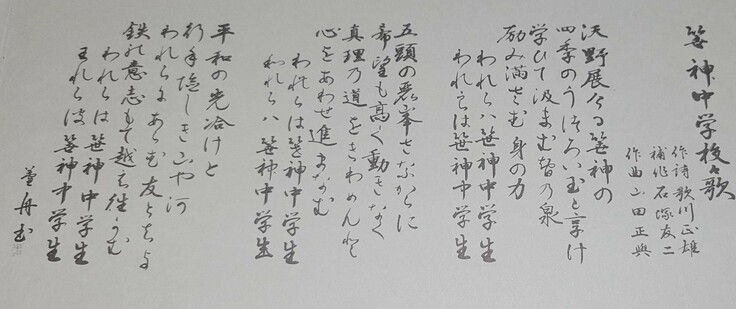 笹神中学校々歌
作詩 歌川正雄
補作 石塚友二
作曲 山田正
沃野展ける笹神の
四季のうつろい玉と享け
学びて汲まむ智の泉
励み満さむ身の力
われらハ笹神中学生
われらは笹神中学生
五頭の麗峯さながらに
希望も高く動きなく
真理の道をきわめんと
心をあわせ進まなむ
われらは笹神中学生
われらハ笹神中学生
平和の光洽けと
行手険しき山や河
われらにあらむ友どちよ
鉄の意志もて越え往かむ
われらは笹神中学生
われらは笹神中学生
舟書